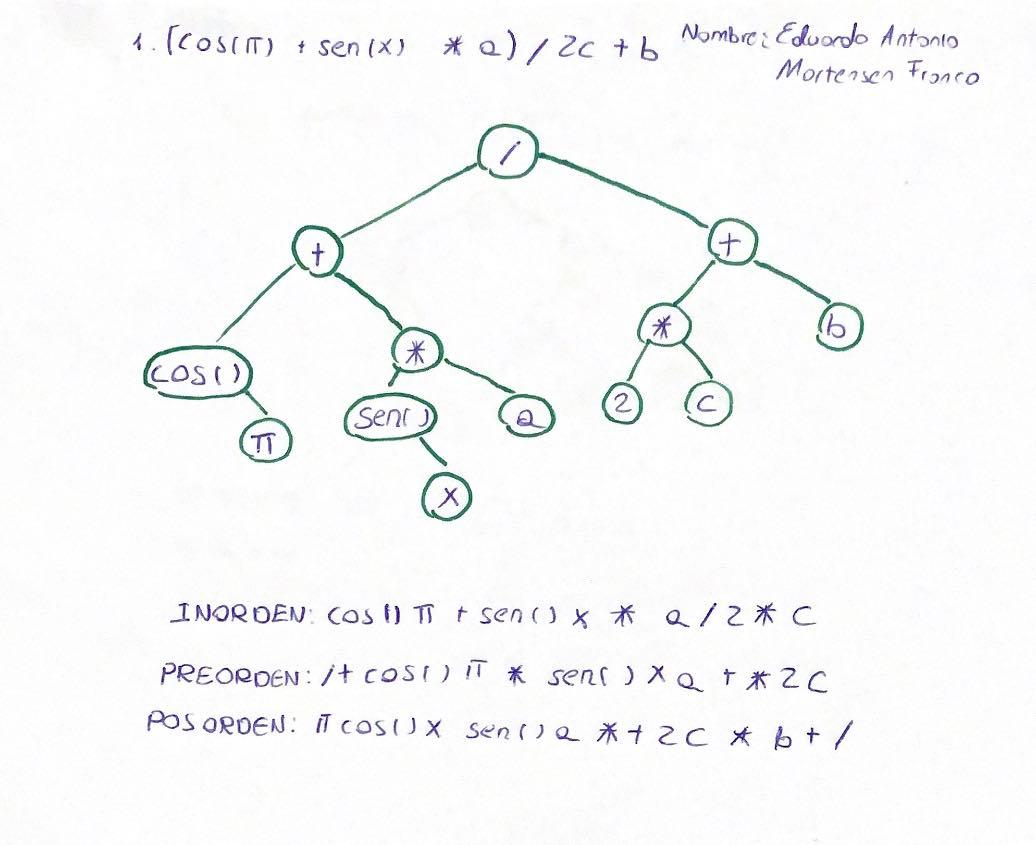 1. (cos(π) + sen(x) * a) / 2c + b
Nombre: Eduardo Antonio
Mortensen Franco
/
+
+
cos()
*
*
b
π
sen()
a
2
c
x
INORDEN: cos() π + sen() x * a / 2 * c
PREORDEN: /+ cos() π * sen() x a + * 2c
POSORDEN: π cos() x sen() a *+ 2c * b + /